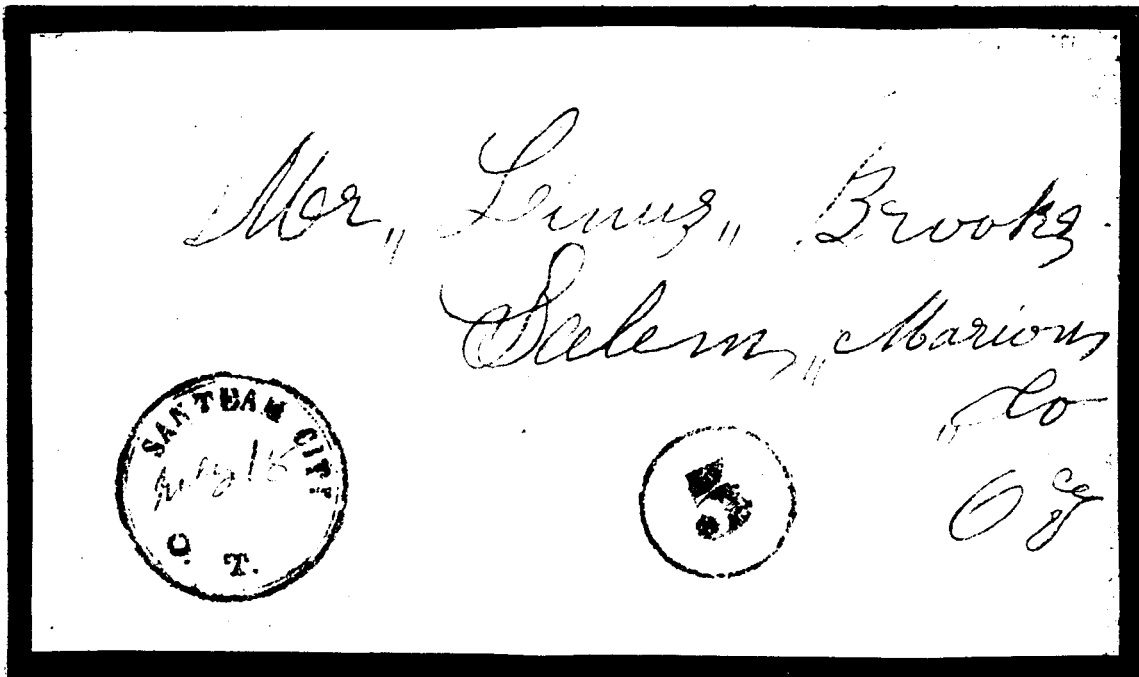 Mr,, Linus,, Brooks.
Salem,,, Marion,
,,Co
O
SANTEAM CITY
July 15
O. T.
5